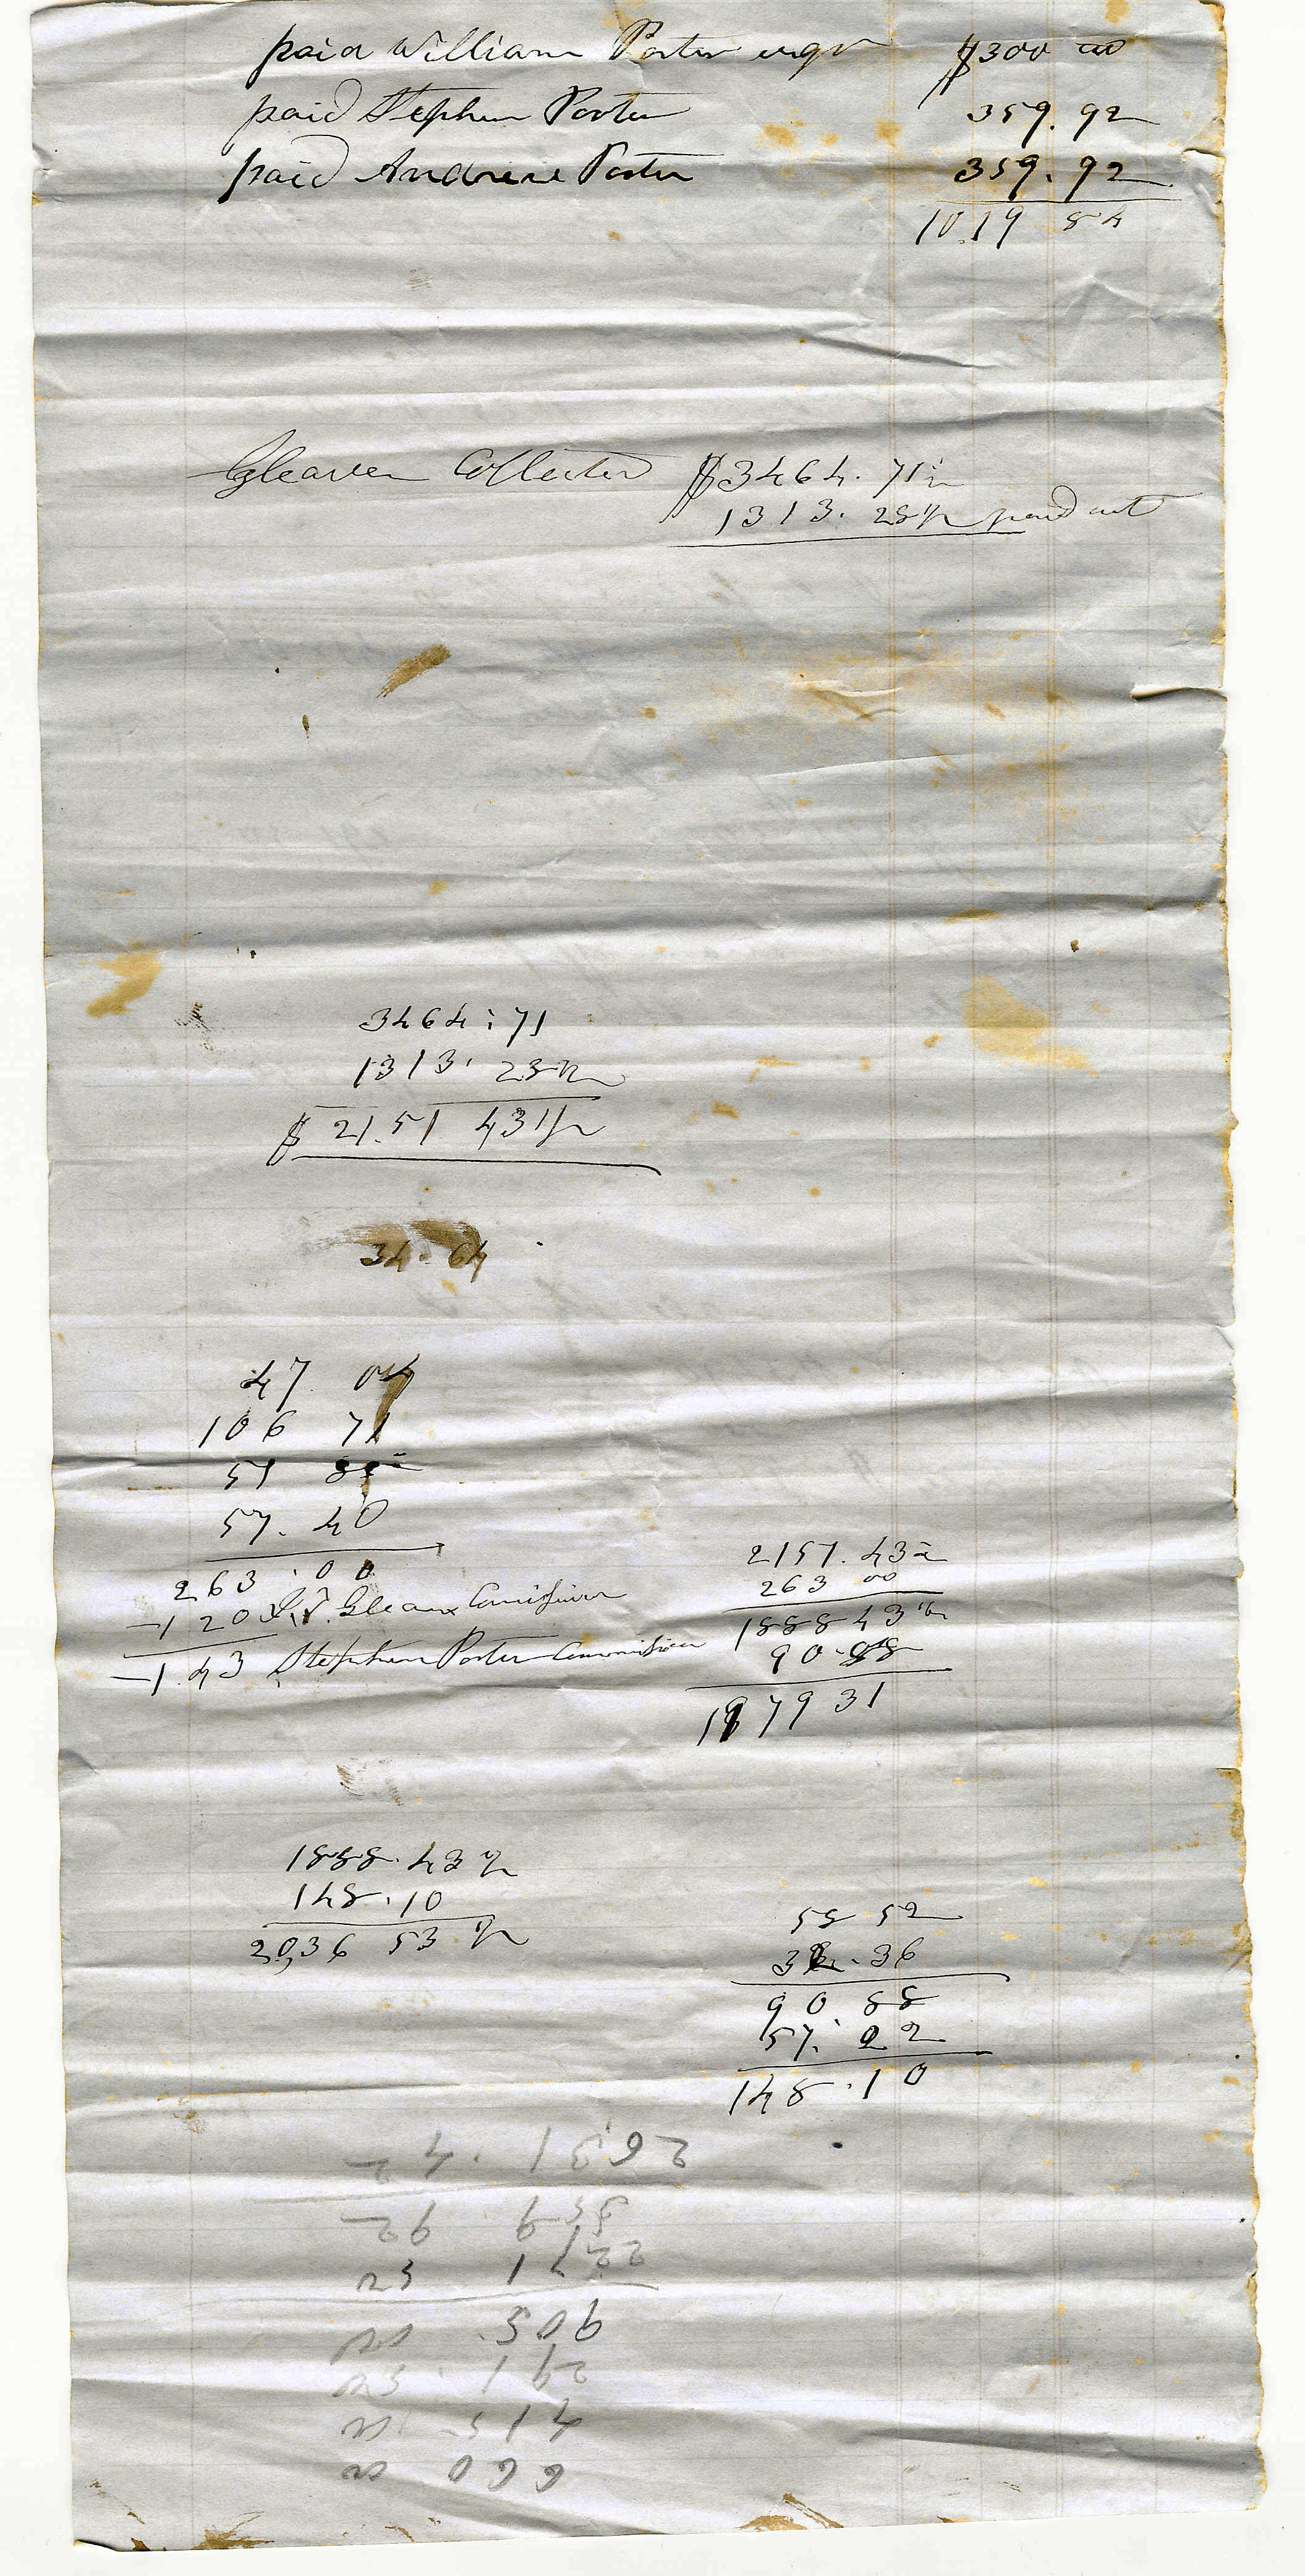 paid William Porter $300 00
paid Stephen Porter 359. 92
paid Andrew Porter 359. 92
10.19 84
Gleaves Collected $3464. 71½
1313. 28½ paid out
3464 : 71
1313. 28½
$ 21.51 43½
34. 64
47 04
106 71
51 85
57. 40
263 . 00
120 Gleaves Comission
1.43 Stephen Porter Commission
2151. 43½
263 00
1888 43½
90.88
1979 31
1888. 43½
148. 10
2036 53 ½
58 52
32. 36
90 88
57. 22
148. 10
660 00
415 00
291. 50
905. 00
2271 50
359 92
2631. 42